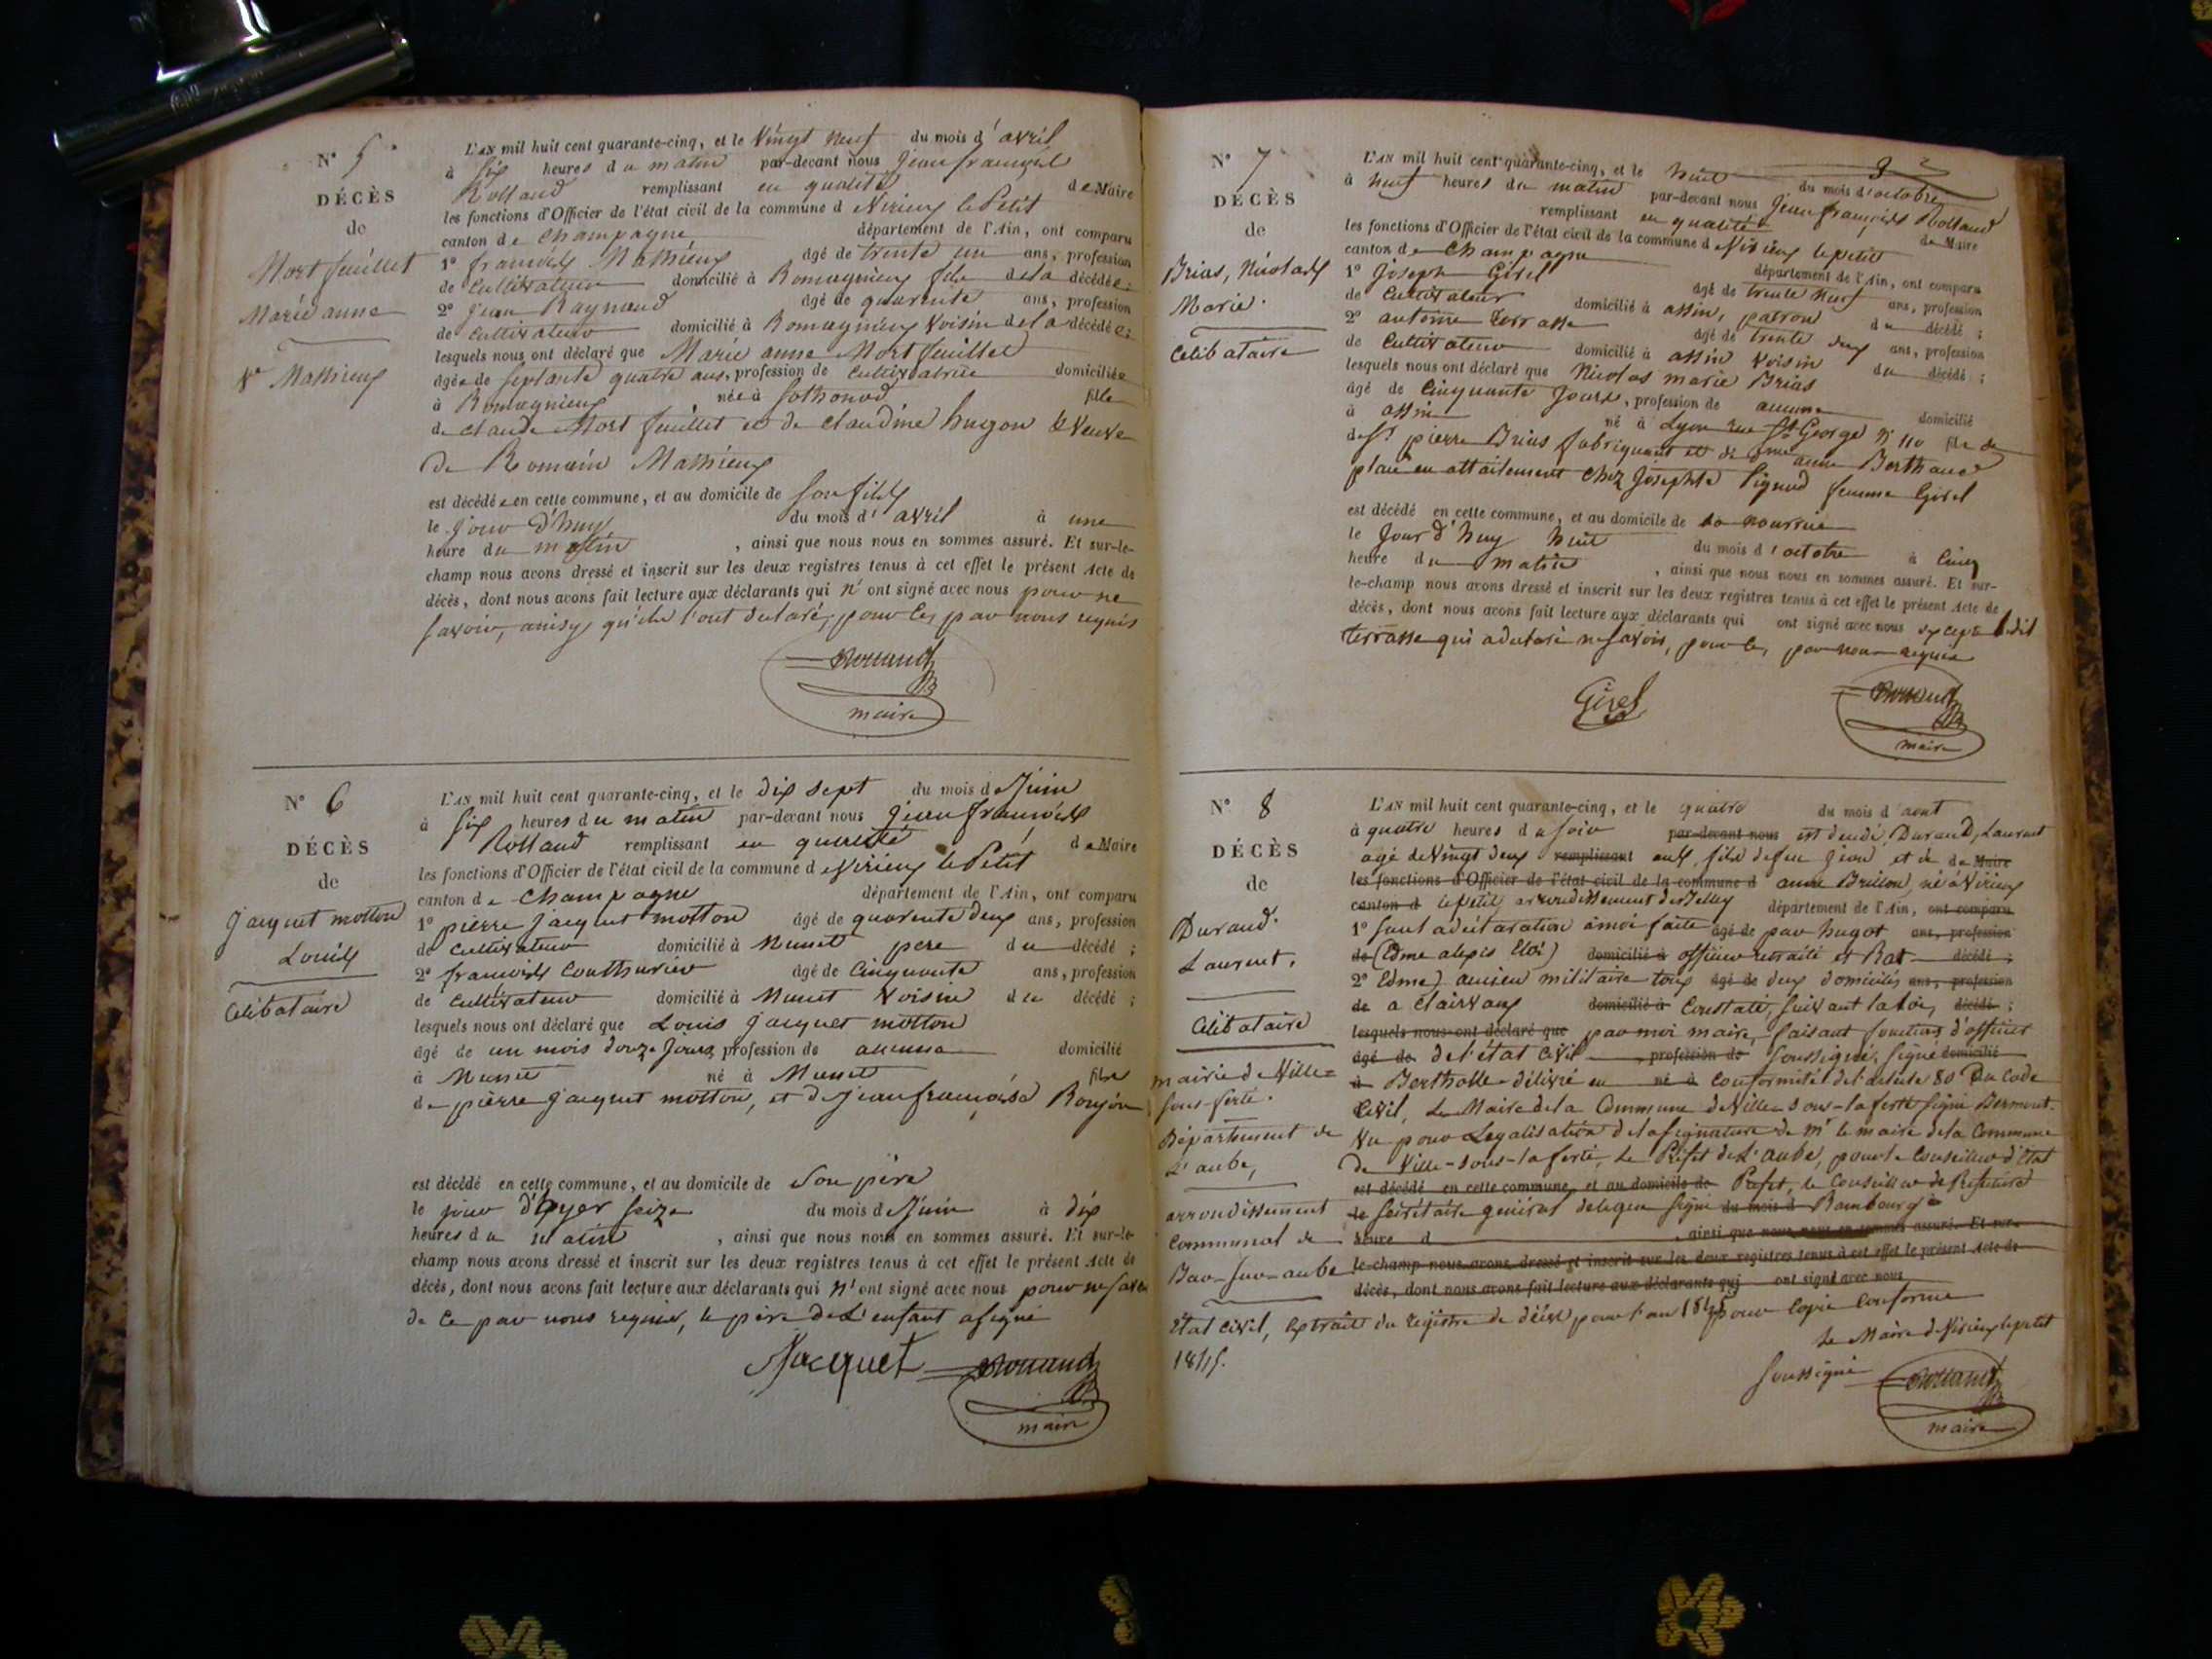 N° 5
DÉCÈS
de
Mortfeuillet
Marie anne
Ve Mathieux
L'AN mil huit cent quarante-cinq, et le Vingt neuf du mois d'avril
à six heures du matin par-devant nous Jean françois
Rolland remplissant en qualité de Maire
les fonctions d'Officier de l'état civil de la commune d Virieux le Petit
canton de Champagne département de l'Ain, ont comparu
1° françois Mathieux âgé de trente un ans, profession
de Cultivateur domicilié à Romagnieux fils de la décédée;
2° Jean Raynaud âgé de quarente ans, profession
de Cultivateur domicilié à Romagnieux voisin de la décédée;
lesquels nous ont déclaré que Marie anne Mortfeuillet
âgée de septante quatre ans, profession de Cultivatrice domiciliée
à Romagnieux née à Sothonod fille
de claude Mort feuillet et de claudine hugon & Veuve
de Romain Mathieux
est décédée en cette commune, et au domicile de son fils
le jour d'huy du mois d'avril à une
heure du matin, ainsi que nous nous en sommes assuré. Et sur-le-
champ nous avons dressé et inscrit sur les deux registres tenus à cet effet le présent Acte de
décès, dont nous avons fait lecture aux déclarants qui n'ont signé avec nous pour ne
savoir, ainsy qu'ils l'ont déclaré, pour ce, par nous requis
Rolland
maire
N° 6
DÉCÈS
de
Jacquet motton
Louis
Célibataire
L'AN mil huit cent quarante-cinq, et le dix sept du mois de Juin
à six heures du matin par-devant nous Jean françois
Rolland remplissant en qualité de Maire
les fonctions d'Officier de l'état civil de la commune d Virieux le Petit
canton de Champagne département de l'Ain, ont comparu
1° pierre jacquet motton âgé de quarente deux ans, profession
de Cultivateur domicilié à Munet pere du décédé;
2° françois Couthurier âgé de Cinquante ans, profession
de Cultivateur domicilié à Munet Voisin du décédé;
lesquels nous ont déclaré que Louis Jacquet motton
âgé de un mois douze Jours profession de aucune domicilié
à Munet né à Munet fils
de pierre jacquet motton, et de Jean françoise Roujon
est décédé en cette commune, et au domicile de son père
le jour d'hyer seize du mois de Juin à dix
heures du matin, ainsi que nous nous en sommes assuré. Et sur-le-
champ nous avons dressé et inscrit sur les deux registres tenus à cet effet le présent Acte de
décès, dont nous avons fait lecture aux déclarants qui n'ont signé avec nous pour ne savoir
de Ce par nous requis, le père de L'enfant a signé
Jacquet Rolland
maire
N° 7
DÉCÈS
de
Brias, Nicolas
Marie.
Célibataire
L'AN mil huit cent quarante-cinq, et le huit du mois d'octobre
à neuf heures du matin par-devant nous Jean françois Rolland
remplissant en qualité de Maire
les fonctions d'Officier de l'état civil de la commune d Virieux le petit
canton de Champagne département de l'Ain, ont comparu
1° Joseph Girel âgé de trente neuf ans, profession
de Cultivateur domicilié à assin, patron du décédé;
2° antoine terrasse âgé de trente deux ans, profession
de Cultivateur domicilié à assin voisin du décédé;
lesquels nous ont déclaré que Nicolas marie Brias
âgé de Cinquante Jours, profession de aucune domicilié
à assin né à Lyon rue St George N° 110 fils de
de Sr pierre Brias fabriquant et de dme anne Berthaud
placé en attaitement chez Josephte Pignod femme Girel
est décédé en cette commune, et au domicile de sa nourrice
le Jour d'huy huit du mois d'octobre à Cinq
heure du matin, ainsi que nous nous en sommes assuré. Et sur-
le-champ nous avons dressé et inscrit sur les deux registres tenus à cet effet le présent Acte de
décès, dont nous avons fait lecture aux déclarants qui ont signé avec nous excepté ledit
terrasse qui a déclaré ne savoir, pour ce, par nous requis
Girel
Rolland
maire
N° 8
DÉCÈS
de
Durand.
Laurent.
Célibataire
mairie de Ville=
sous-ferté.
Département de
L'aube,
arrondissement
Communal de
Bar-sur-aube
L'AN mil huit cent quarante-cinq, et le quatre du mois d'aout
à quatre heures du soir par-devant nous est décédé, Durand, Laurent
agé de Vingt deux remplissant ans, fils de feu Jean et de de Maire
les fonctions d'Officier de l'état civil de la commune d anne Brillon, né à Virieux
canton d le petit, arrondissement de Belley département de l'Ain, ont comparu
1° sur la déclaration à moi faite âgé de par hugot ans, profession
de (Edme alexis Eloi) domicilié à officier retraité et Rat décédé;
2° Edme) ancien militaire tous âgé de deux domiciliés ans, profession
de a Clairvaux domicilié à Constaté, suivant la loi, décédé;
lesquels nous ont déclaré que par moi maire, faisant fonctions d'officier
âgé de de l'état Civil, profession de soussigné, signé domicilié
à Bertholle-délivré en né à conformité de l'article 80 Du Code
Civil, Le Maire de la Commune de Ville-sous-la ferté signé Dermont.
Vu pour Légalisation de la signature de Mr le maire de la Commune
de Ville-sous-la ferté, Le Préfet de L'aube, pour le Conseiller d'Etat
est décédé en cette commune, et au domicile de Préfet, le Conseiller de Préfecture
le Secrétaire général délégué signé du mois d Rambourg à
heure d, ainsi que nous nous en sommes assuré. Et sur-
le-champ nous avons dressé et inscrit sur les deux registres tenus à cet effet le présent Acte de
décès, dont nous avons fait lecture aux déclarants qui ont signé avec nous
Etat Civil, Extrait du registre de décès pour l'an 1845 pour Copie Conforme
1845.
Le Maire de Virieux le petit
soussigné Rolland
maire